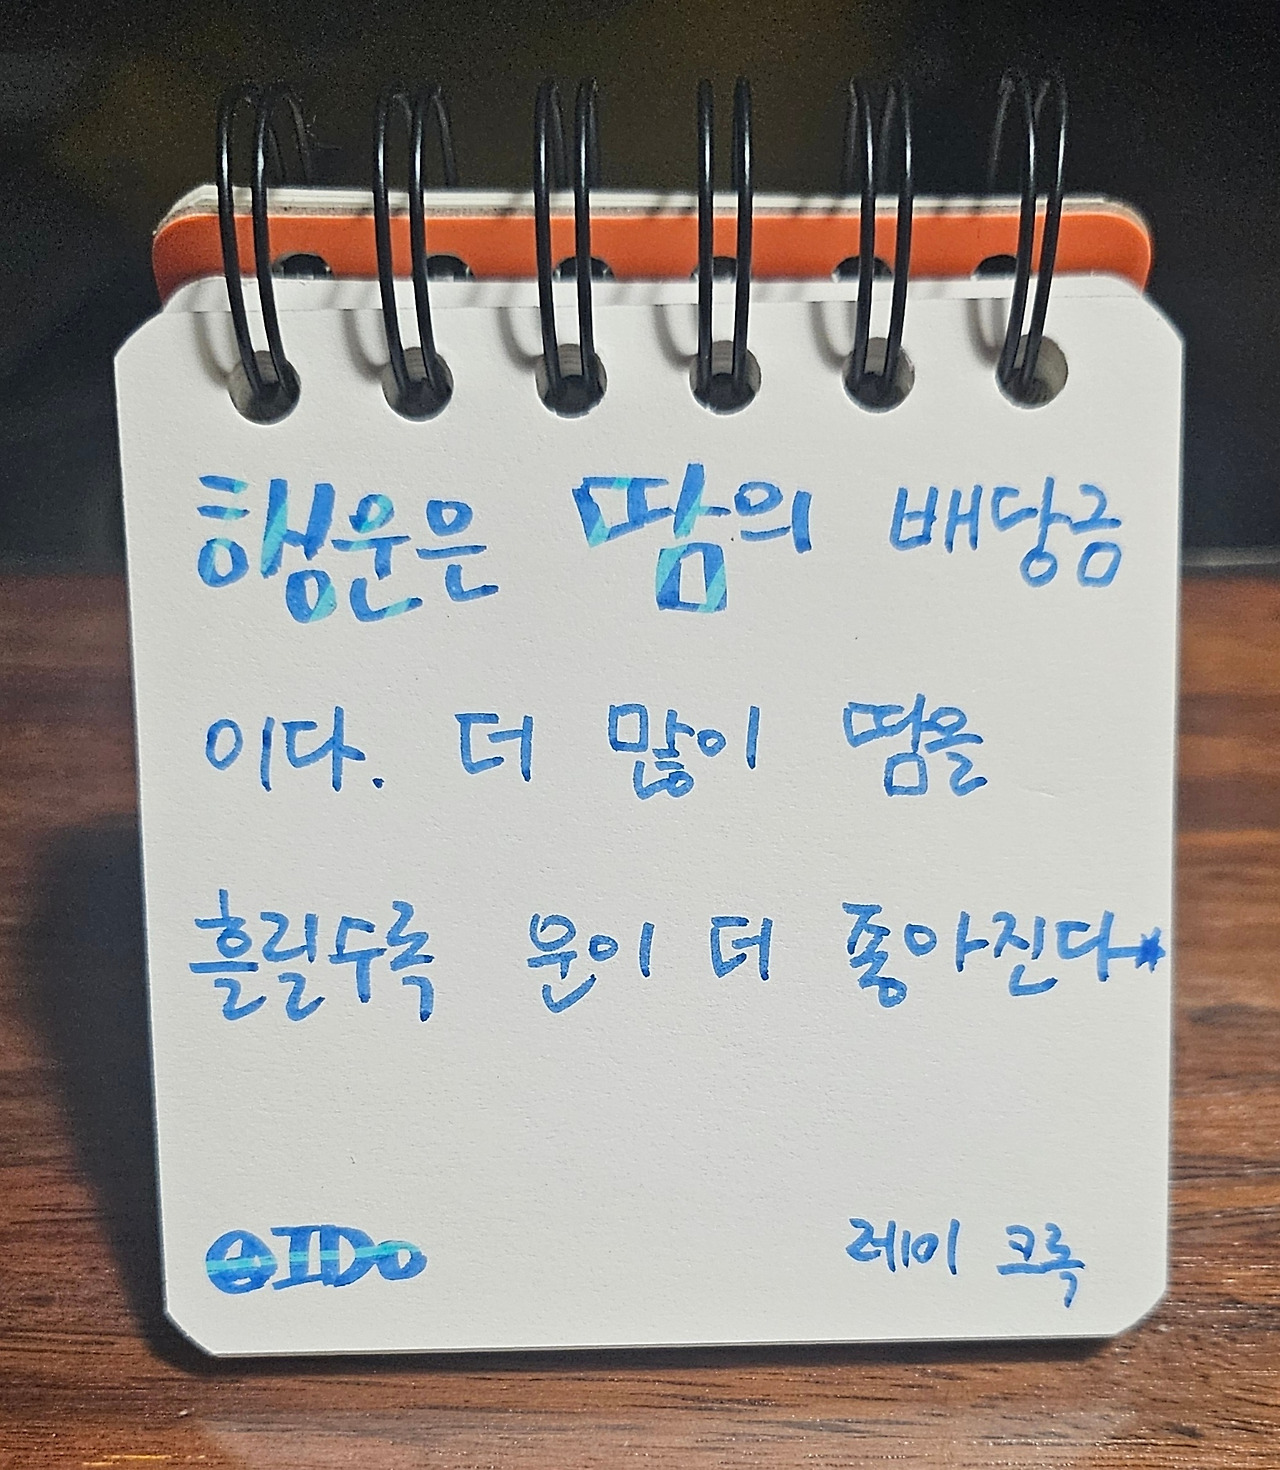 행운은 땀의 배당금
이다. 더 많이 땀을
흘릴수록 운이 더 좋아진다
레이 크록